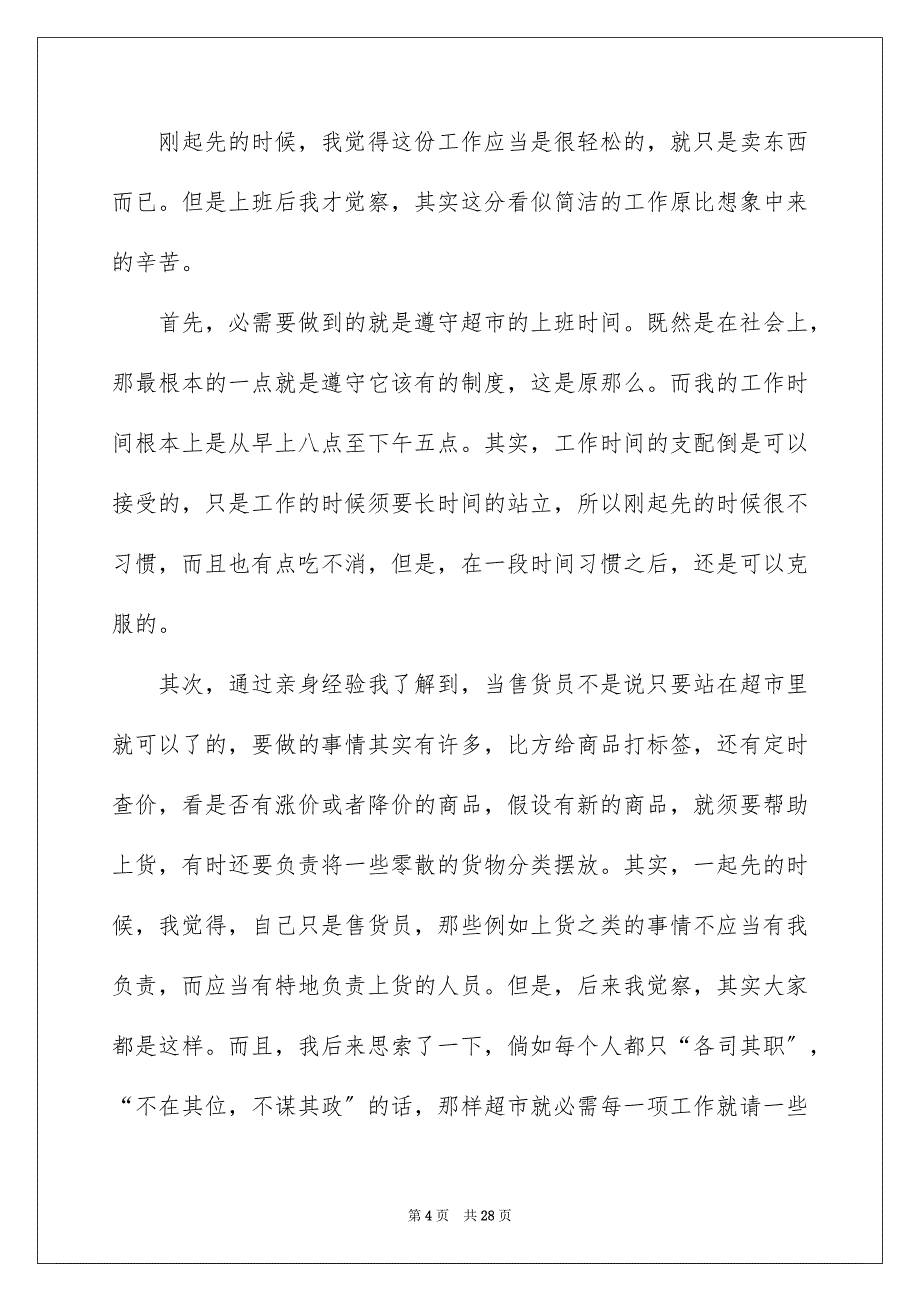 刚起先的时候，我觉得这份工作应当是很轻松的，就只是卖东西
而已。但是上班后我才觉察，其实这分看似简洁的工作原比想象中来
的辛苦。
首先，必需要做到的就是遵守超市的上班时间。既然是在社会上，
那最根本的一点就是遵守它该有的制度，这是原那么。而我的工作时
间根本上是从早上八点至下午五点。其实，工作时间的支配倒是可以
接受的，只是工作的时候须要长时间的站立，所以刚起先的时候很不
习惯，而且也有点吃不消，但是，在一段时间习惯之后，还是可以克
服的。
其次，通过亲身经验我了解到，当售货员不是说只要站在超市里
就可以了的，要做的事情其实有许多，比方给商品打标签，还有定时
查价，看是否有涨价或者降价的商品，假设有新的商品，就须要帮助
上货，有时还要负责将一些零散的货物分类摆放。其实，一起先的时
候，我觉得，自己只是售货员，那些例如上货之类的事情不应当有我
负责，而应当有特地负责上货的人员。但是，后来我觉察，其实大家
都是这样。而且，我后来思索了一下，倘如每个人都只“各司其职〞，
“不在其位，不谋其政〞的话，那样超市就必需每一项工作就请一些
第 4 页 共 28 页